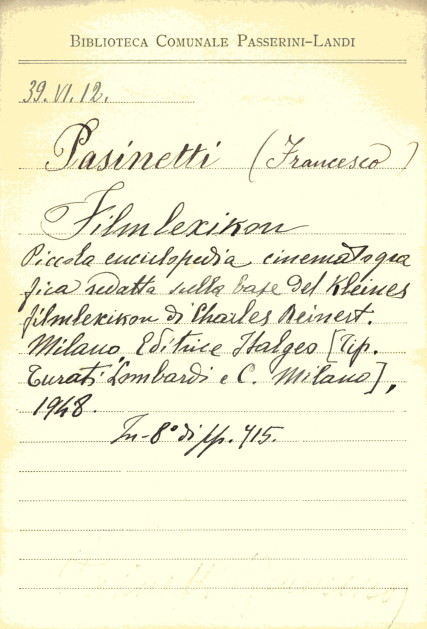 BIBLIOTECA COMUNALE PASSERINI-LANDI
39.VI.12.
Pasinetti (Francesco)
Filmlexikon
Piccola enciclopedia cinematogra
fica redatta sulla base del Kleines
filmlexikon di Charles Reinert.
Milano, Editrice Italgeo [Tip.
Turati Lombardi e C. Milano],
1948.
In-8° di pp. 715.